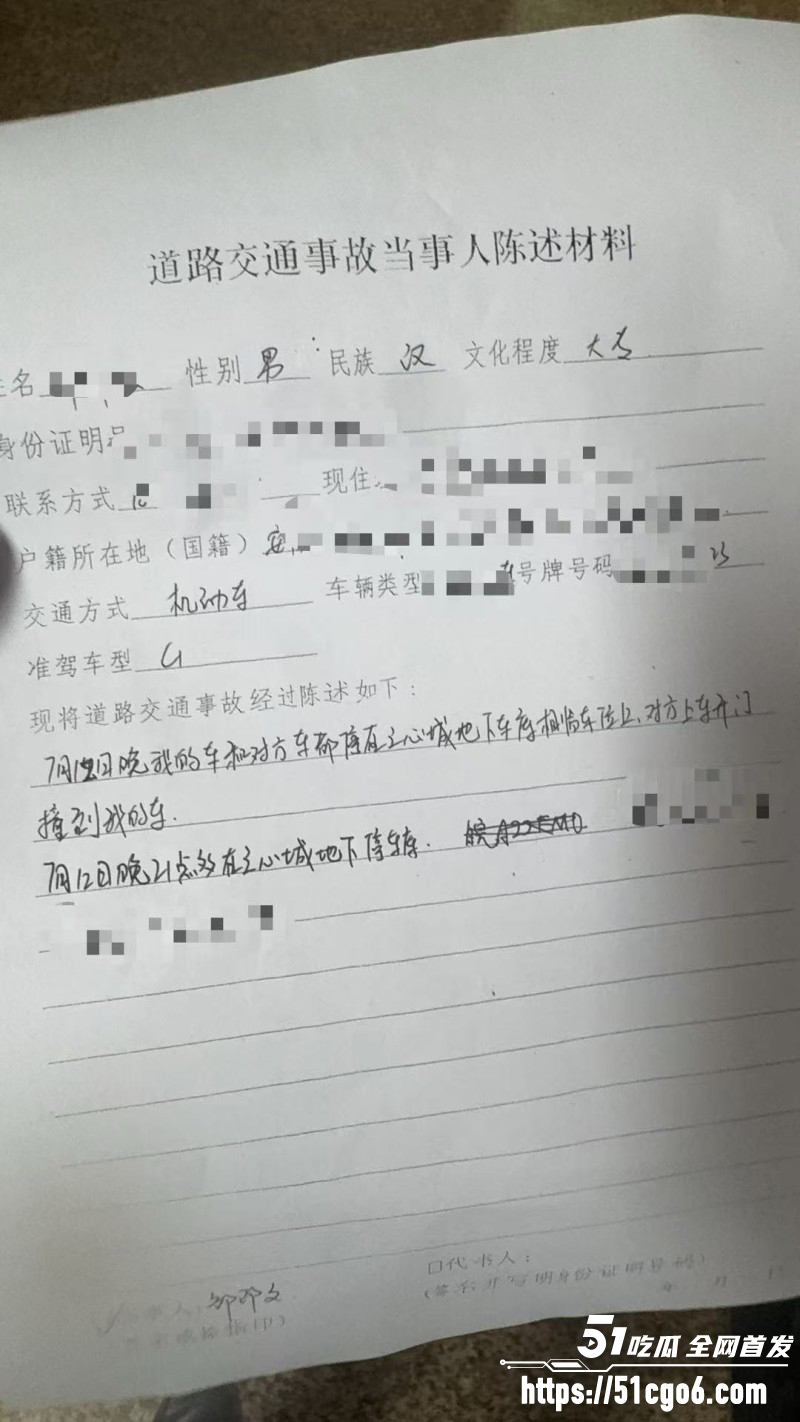 道路交通事故当事人陈述材料
名 性别 男 民族 汉 文化程度 大专
身份证明
联系方式 现住
户籍所在地（国籍）安
交通方式 机动车 车辆类型 号牌号码
准驾车型 C1
现将道路交通事故经过陈述如下：
7月12日晚我的车和对方车都停在之心城地下车库相临车位上，对方上车开门
撞到我的车.
7月12日晚21点多在之心城地下停车库.
口代书人：
(签名并写明身份证明号码)
年 月 日
51吃瓜 全网首发
https://51cgo6.com